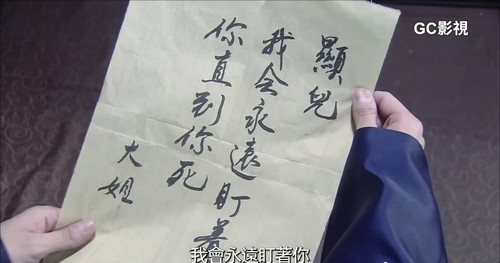 GC影視
顯兒
我会永遠盯着
你直到你死
大姐
我會永遠盯著你